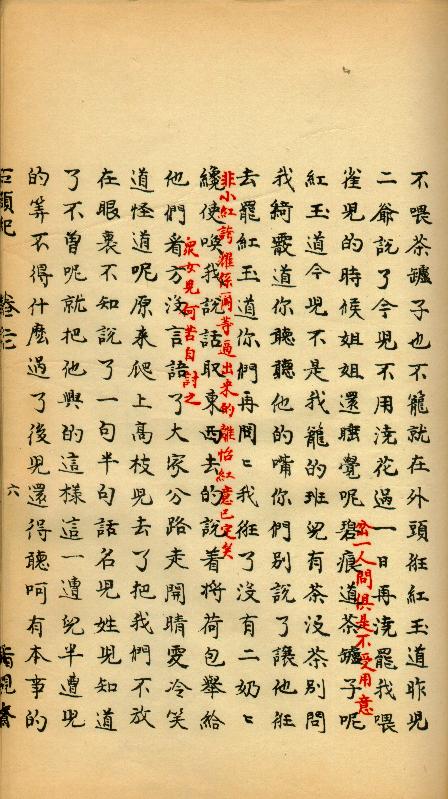 不喂茶罏子也不籠就在外頭俇紅玉道昨兒
二爺說了今兒不用澆花過一日再澆罷我喂
雀兒的時候姐姐還睡覺呢碧痕道茶罏子呢
岔一人問俱是不受用意
紅玉道今兒不是我籠的班兒有茶沒茶別問
我綺霰道你聽聽他的嘴你們別說了讓他俇
去罷紅玉道你們再問〻我俇了沒有二奶〻
非小紅誇耀係爾等逼出來的離怡紅意已定矣
纔使喚我說話取東西去的說着將荷包舉給
衆女兒何苦自討之
他們看方沒言語了大家分路走開晴雯冷笑
道怪道呢原來爬上高枝兒去了把我們不放
在眼裏不知說了一句半句話名兒姓兒知道
了不曾呢就把他興的這樣這一遭兒半遭兒
的筭不得什麽過了後兒還得聽呵有本事的
石頭記 卷 六 脂硯齋